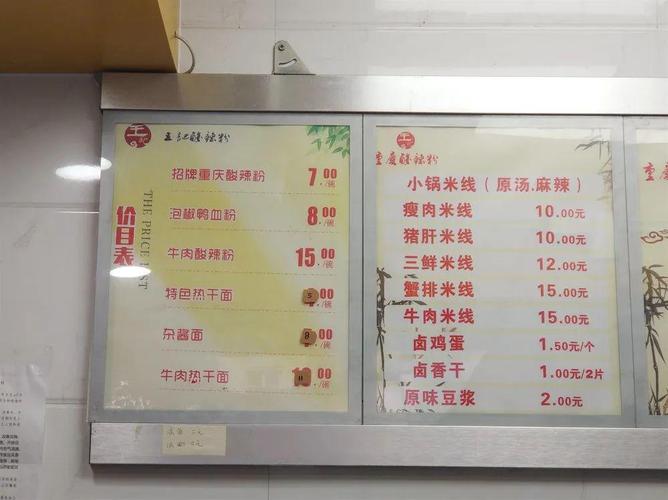 王记酸辣粉
价目表
THE PRICE LIST
招牌重庆酸辣粉 7.00/碗
泡椒鸭血粉 8.00/碗
牛肉酸辣粉 15.00/碗
特色热干面 5.00/碗
杂酱面 8.00/碗
牛肉热干面
重庆酸辣粉
小锅米线（原汤.麻辣）
瘦肉米线 10.00元
猪肝米线 10.00元
三鲜米线 12.00元
蟹排米线 15.00元
牛肉米线 15.00元
卤鸡蛋 1.50元/个
卤香干 1.00元/2片
原味豆浆 2.00元